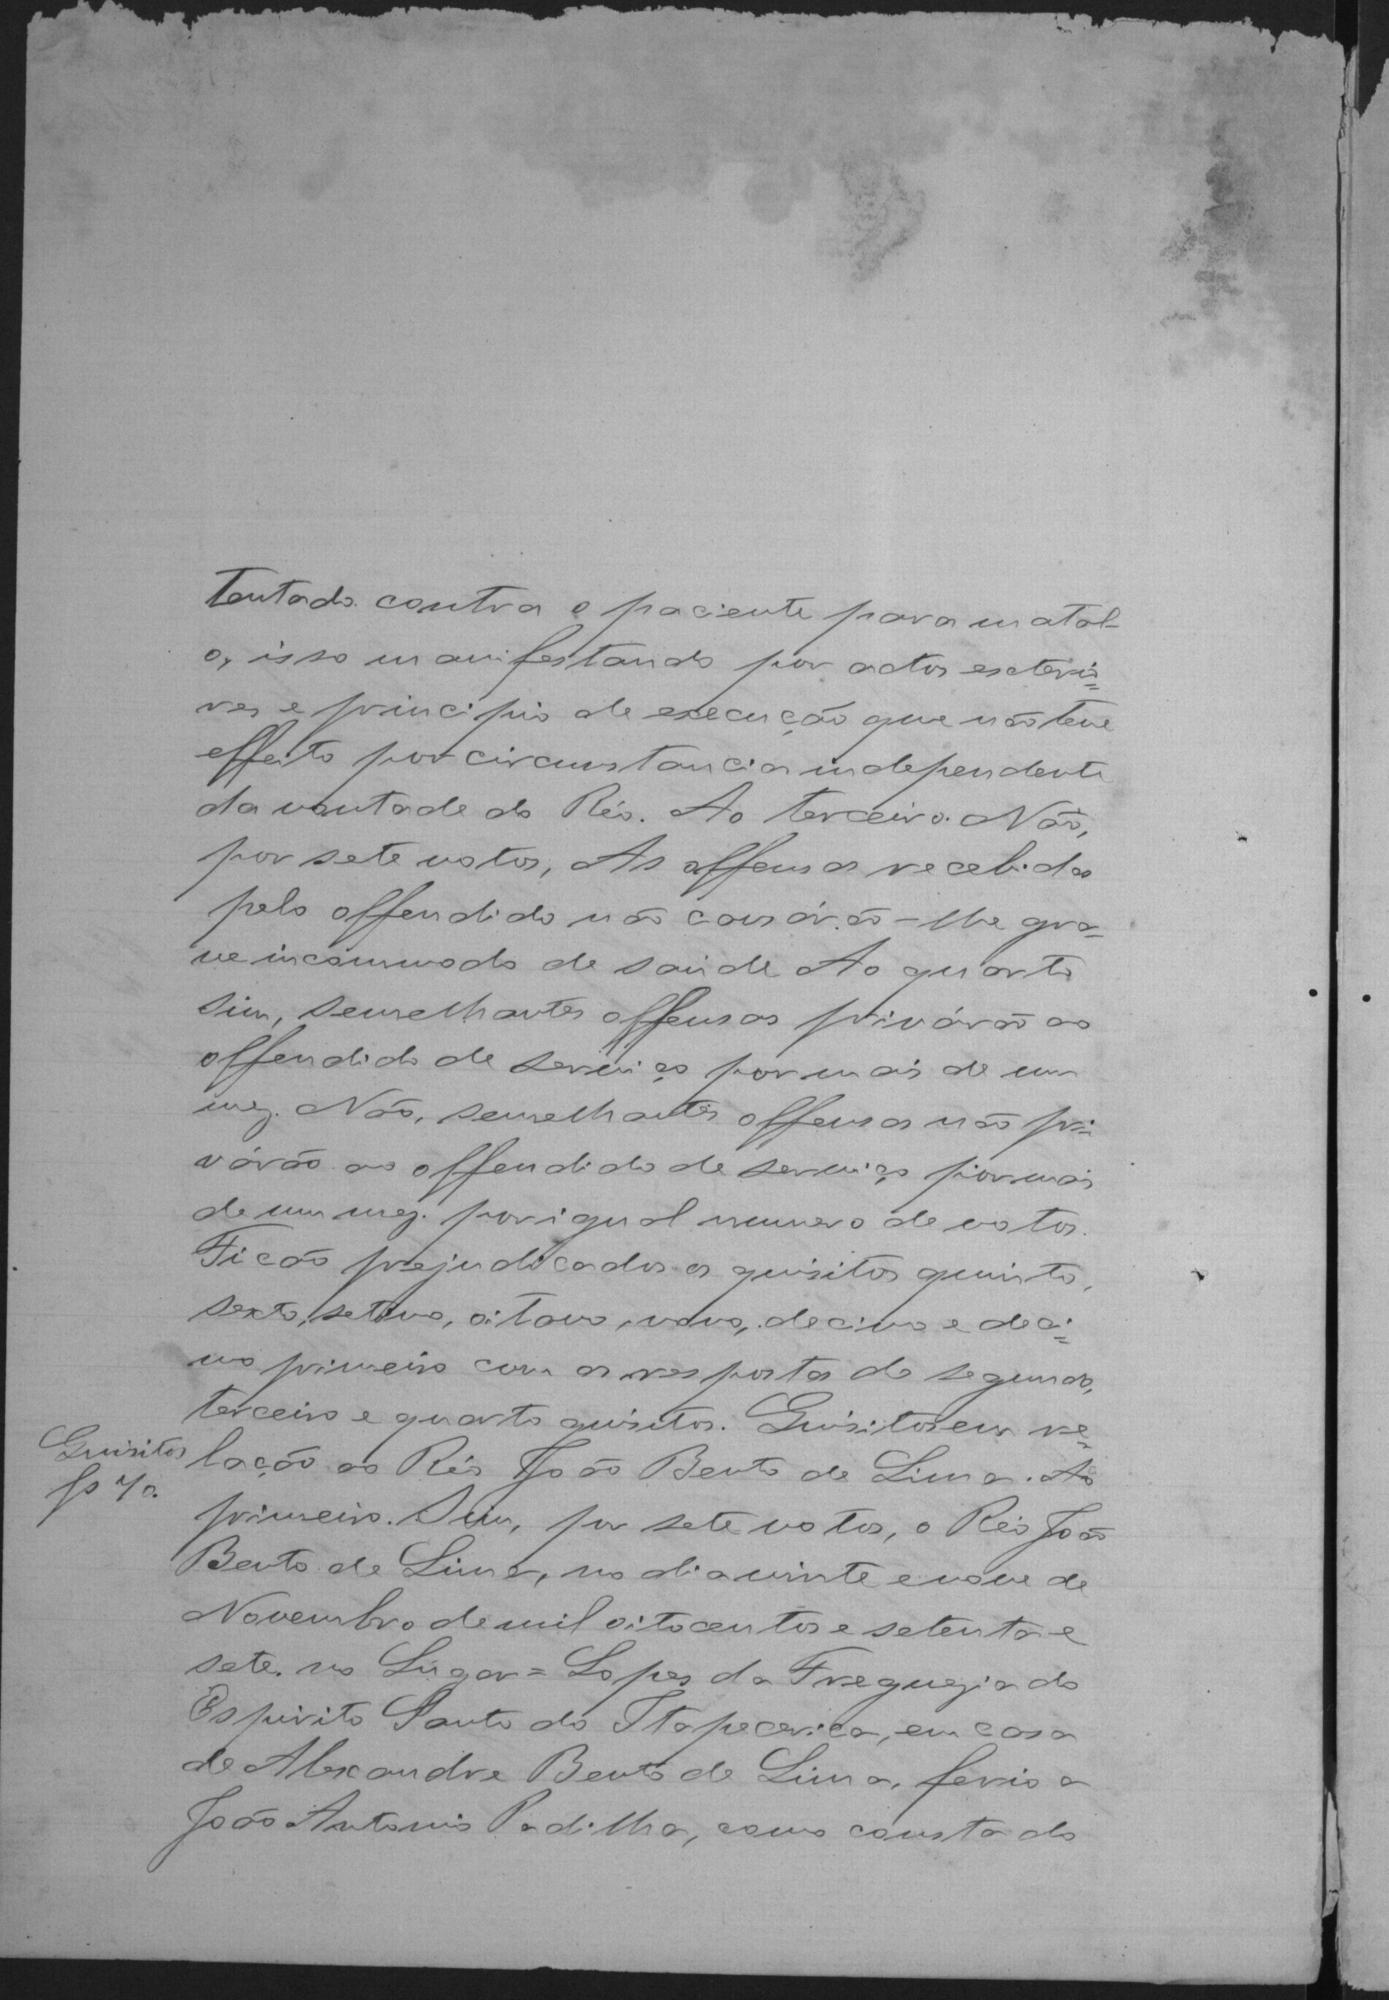 tentado contra o paciente para matal-
o, isso manifestando por actos exterio=
res e principio de execução que não teve
effeito por circunstancia independente
da vontade do Réo. Ao terceiro. Não,
por sete votos, As offensas recebidas
pelo offendido não causárão-lhe gra=
ve incommodo de saúde Ao quarto
Sim, semelhantes offensas privárão ao
offendido de serviço por mais de um
mez. Não, semelhantes offensas não pri=
várão ao offendido de serviço por mais
de um mez. por igual numero de votos.
Ficão prejudicados os quisitos quinto,
sexto, setimo, oitavo, nono, decimo e deci=
mo primeiro com as respostas do segundo,
terceiro e quarto quisitos. Quisitos em re=
Quisitos
fs 70.
lação ao Réo João Bento de Lima. Ao
primeiro. Sim, por sete votos, o Réo João
Bento de Lima, no dia vinte e nove de
Novembro de mil oitocentos e setenta e
sete. no Lugar = Lopes da Freguezia do
Espirito Santo do Itapecerica, em casa
de Alexandre Bento de Lima, ferio a
João Antonio Padilha, como consta do